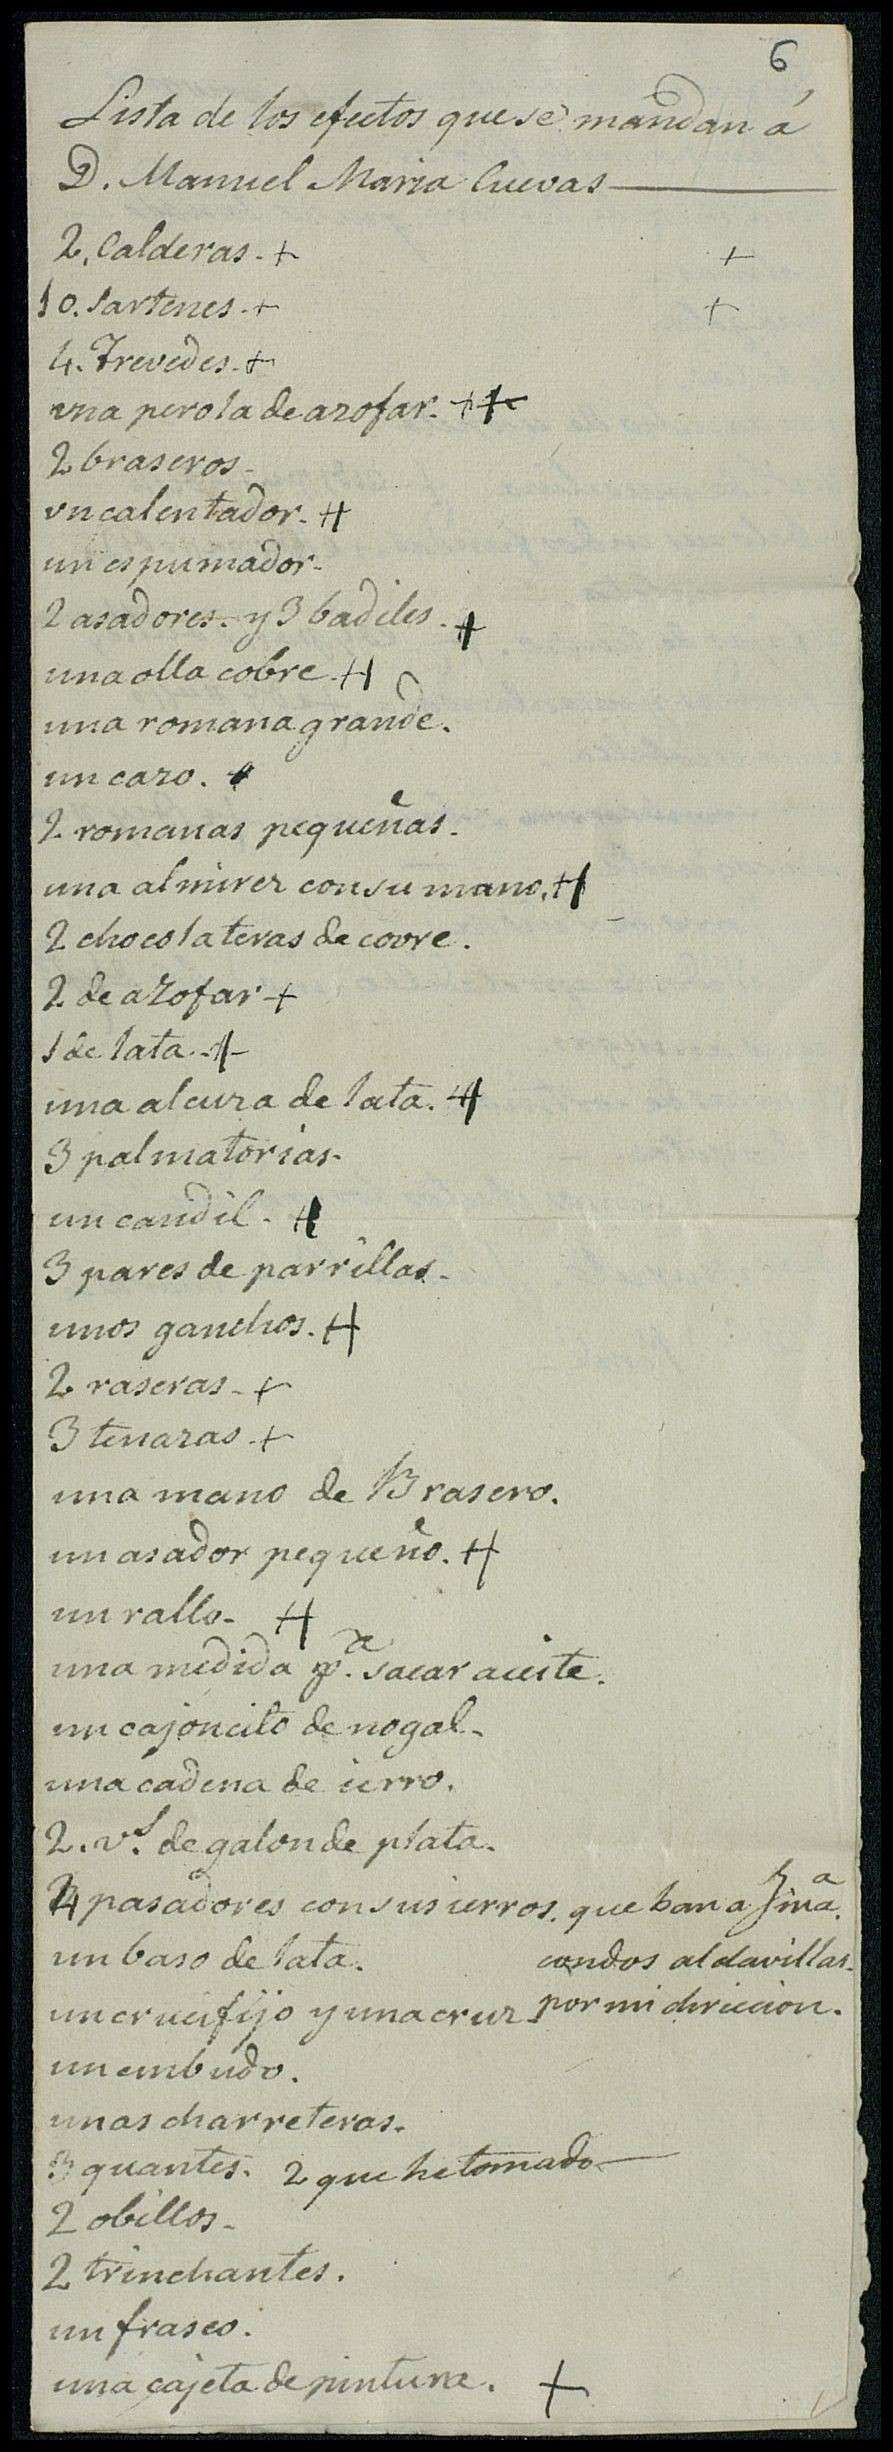 6
Lista de los efectos que se mandan á
D. Manuel Maria Cuevas
2, Calderas - + +
10. sartenes - + +
4. Trevedes - +
vna perola de azofar. - + +
2 braseros -
vn calentador - ++
un espumador -
2 asadores - y 3 badiles - +
una olla cobre - ++
una romana grande.
un cazo. +
2 romanas pequeñas -
una almirez con su mano, ++
2 chocolateras de covre.
2. de azofar +
1 de lata - +
una alcuza de lata. ++
3 palmatorias -
un candil - ++
3 pares de parrillas -
unos ganchos. ++
2 raseras - +
3 tenazas - +
una mano de Brasero.
un asador pequeño. ++
un rallo - ++
una medida pa. sacar aceite.
un cajoncito de nogal -
una cadena de ierro.
2. vs. de galon de plata.
4 pasadores con sus ierros. que ban a
un baso de lata. con dos aldavillas -
un crucifijo y una cruz - por mi direccion.
un embudo.
unas charreteras.
3 guantes. 2 que he tomado
2 obillos -
2 trinchantes.
un frasco.
una cajeta de pintura. +